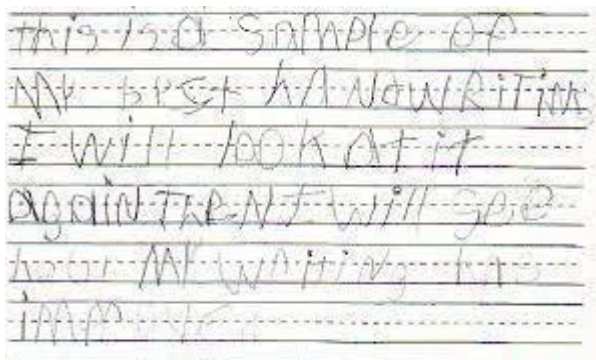 this is a SAMPle of
My best hANdWRiTiNg
I Will look at it
agaiN TheN I Will See
how My WRitiNg has